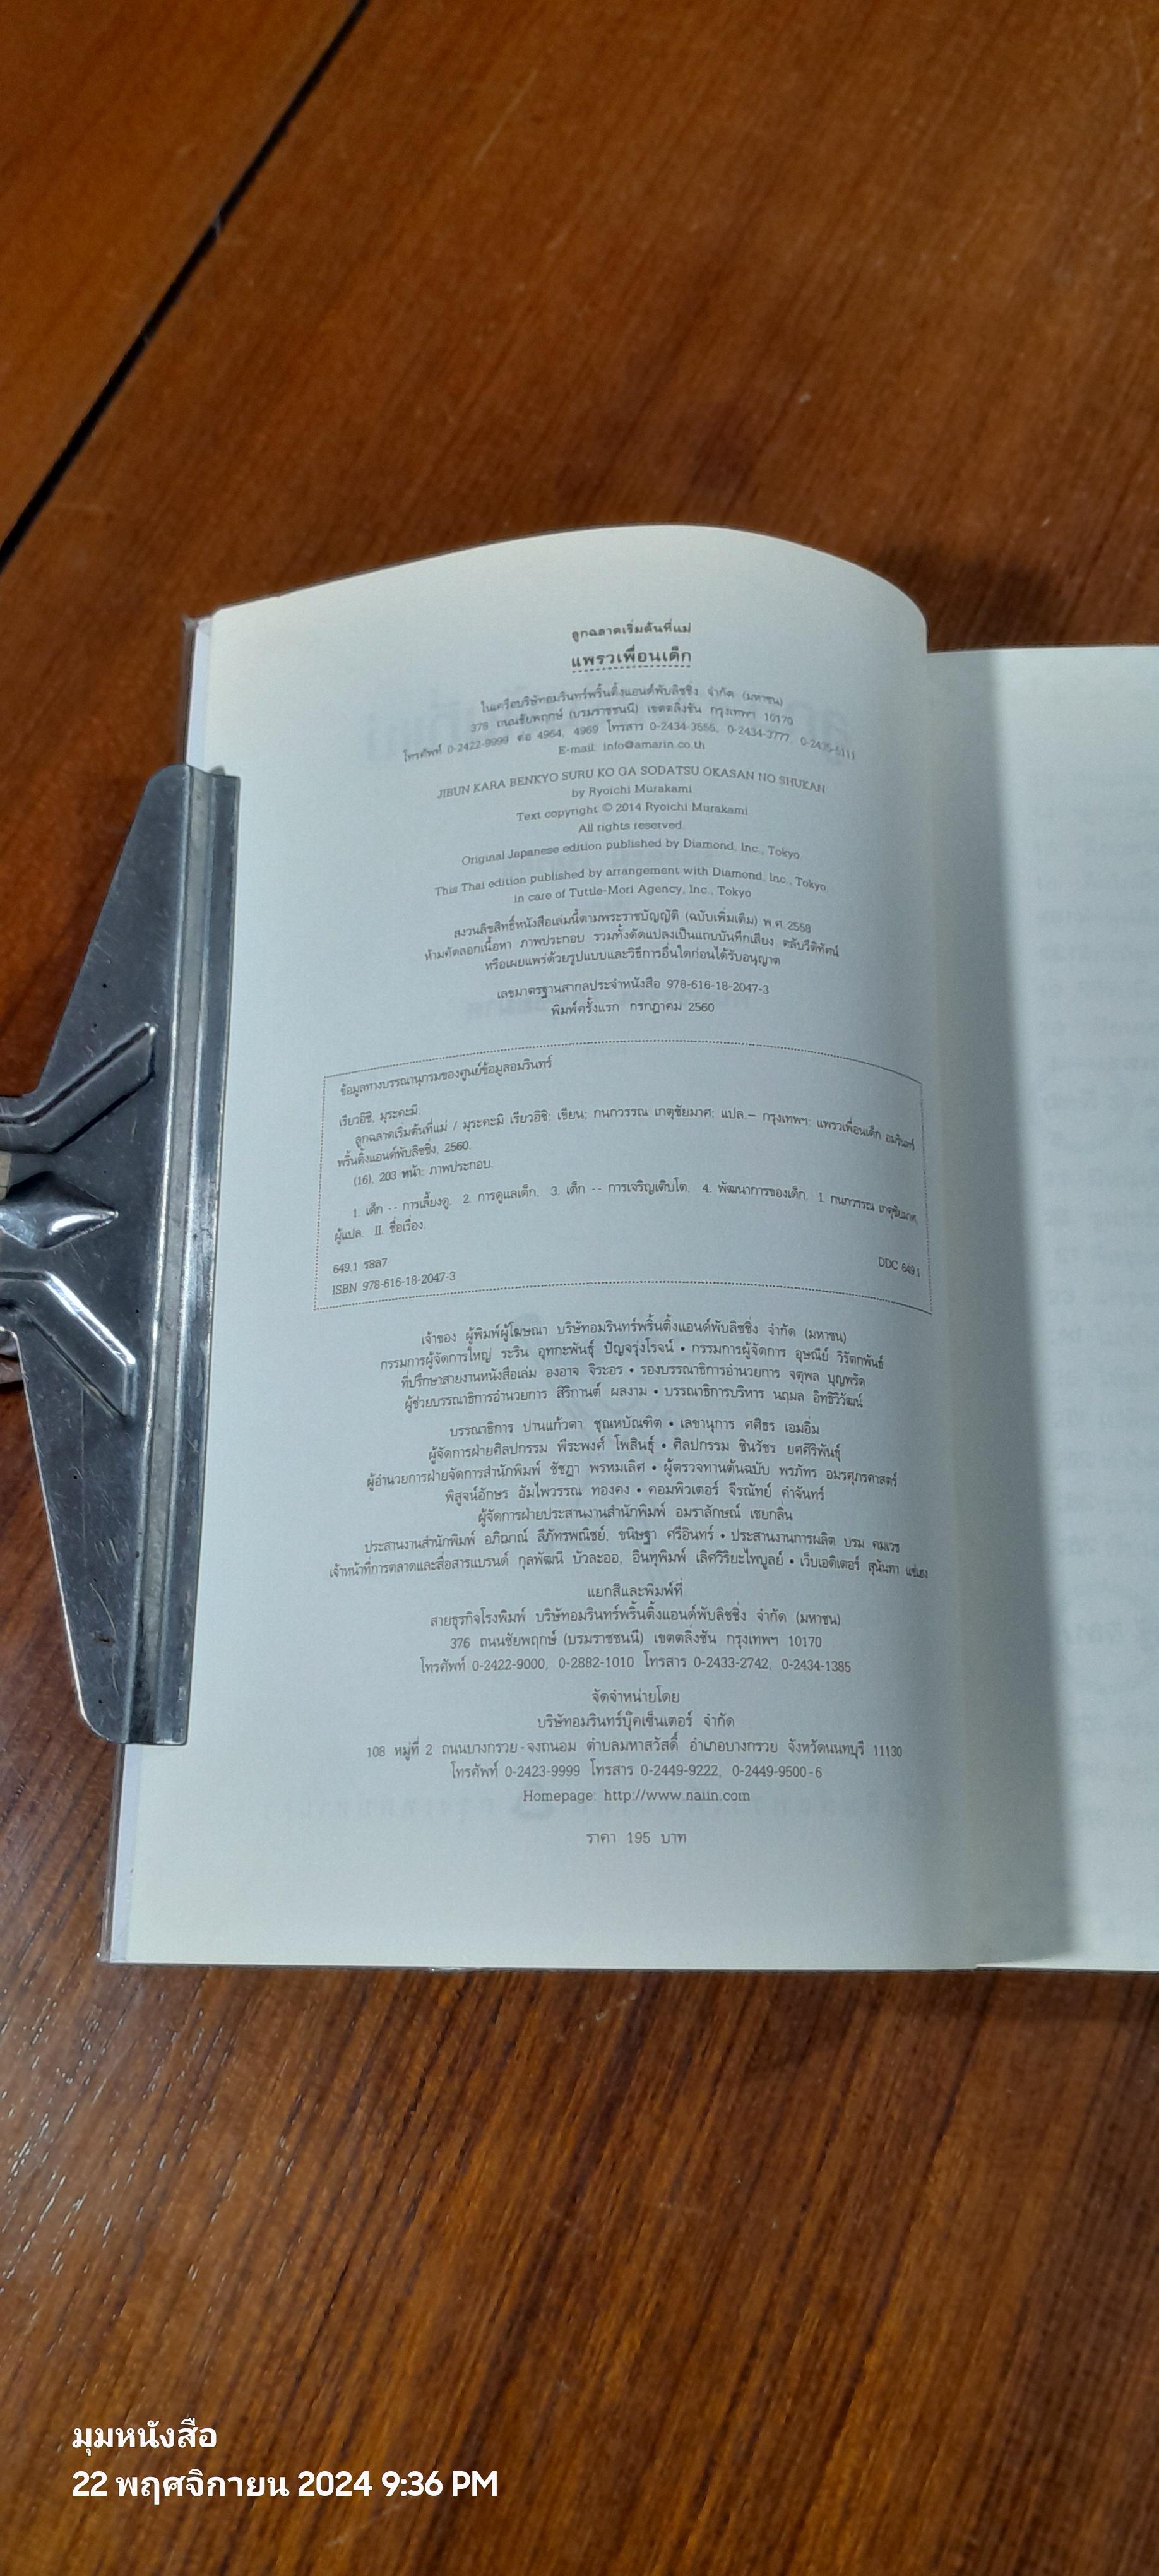 ลูกฉลาดเริ่มต้นที่แม่
แพรวเพื่อนเด็ก
ในเครือบริษัทอมรินทร์พริ้นติ้งแอนด์พับลิชชิ่ง จำกัด (มหาชน)
378 ถนนชัยพฤกษ์ (บรมราชชนนี) เขตตลิ่งชัน กรุงเทพฯ 10170
โทรศัพท์ 0-2422-9999 ต่อ 4964, 4969 โทรสาร 0-2434-3555, 0-2434-3777, 0-2435-5111
E-mail: info@amarin.co.th
JIBUN KARA BENKYO SURU KO GA SODATSU OKASAN NO SHUKAN
by Ryoichi Murakami
Text copyright © 2014 Ryoichi Murakami
All rights reserved.
Original Japanese edition published by Diamond, Inc., Tokyo
This Thai edition published by arrangement with Diamond, Inc., Tokyo
in care of Tuttle-Mori Agency, Inc., Tokyo
สงวนลิขสิทธิ์หนังสือเล่มนี้ตามพระราชบัญญัติ (ฉบับเพิ่มเติม) พ.ศ. 2558
ห้ามคัดลอกเนื้อหา ภาพประกอบ รวมทั้งดัดแปลงเป็นแถบบันทึกเสียง ตลับวีดิทัศน์
หรือเผยแพร่ด้วยรูปแบบและวิธีการอื่นใดก่อนได้รับอนุญาต
เลขมาตรฐานสากลประจำหนังสือ 978-616-18-2047-3
พิมพ์ครั้งแรก กรกฎาคม 2560
ข้อมูลทางบรรณานุกรมของศูนย์ข้อมูลอมรินทร์
เรียวอิชิ, มุระคะมิ.
ลูกฉลาดเริ่มต้นที่แม่ / มุระคะมิ เรียวอิชิ: เขียน; กนกวรรณ เกตุชัยมาศ: แปล.– กรุงเทพฯ: แพรวเพื่อนเด็ก อมรินทร์
พริ้นติ้งแอนด์พับลิชชิ่ง, 2560.
(16), 203 หน้า: ภาพประกอบ.
1. เด็ก -- การเลี้ยงดู. 2. การดูแลเด็ก. 3. เด็ก -- การเจริญเติบโต. 4. พัฒนาการของเด็ก. I. กนกวรรณ เกตุชัยมาศ,
ผู้แปล. II. ชื่อเรื่อง.
649.1 ร8ล7
DDC 649.1
ISBN 978-616-18-2047-3
เจ้าของ ผู้พิมพ์ผู้โฆษณา บริษัทอมรินทร์พริ้นติ้งแอนด์พับลิชชิ่ง จำกัด (มหาชน)
กรรมการผู้จัดการใหญ่ ระริน อุทกะพันธุ์ ปัญจรุ่งโรจน์ • กรรมการผู้จัดการ อุษณีย์ วิรัตกพันธ์
ที่ปรึกษาสายงานหนังสือเล่ม องอาจ จิระอร • รองบรรณาธิการอำนวยการ จตุพล บุญพรัด
ผู้ช่วยบรรณาธิการอำนวยการ สิริกานต์ ผลงาม • บรรณาธิการบริหาร นฤมล อิทธิวิวัฒน์
บรรณาธิการ ปานแก้วตา ชุณหบัณฑิต • เลขานุการ ศศิธร เอมอิ่ม
ผู้จัดการฝ่ายศิลปกรรม พีระพงศ์ โพสินธุ์ • ศิลปกรรม ชินวัชร ยศศิริพันธุ์
ผู้อำนวยการฝ่ายจัดการสำนักพิมพ์ ชัชฎา พรหมเลิศ • ผู้ตรวจทานต้นฉบับ พรภัทร อมรศุภรศาสตร์
พิสูจน์อักษร อัมไพวรรณ ทองคง • คอมพิวเตอร์ จีรณัทย์ คำจันทร์
ผู้จัดการฝ่ายประสานงานสำนักพิมพ์ อมราลักษณ์ เชยกลิ่น
ประสานงานสำนักพิมพ์ อภิฌาณ์ ลีภัทรพณิชย์, ขนิษฐา ศรีอินทร์ • ประสานงานการผลิต บรม คมเวช
เจ้าหน้าที่การตลาดและสื่อสารแบรนด์ กุลพัฒนี บัวละออ, อินทุพิมพ์ เลิศวิริยะไพบูลย์ • เว็บเอดิเตอร์ สุนันทา
แยกสีและพิมพ์ที่
สายธุรกิจโรงพิมพ์ บริษัทอมรินทร์พริ้นติ้งแอนด์พับลิชชิ่ง จำกัด (มหาชน)
376 ถนนชัยพฤกษ์ (บรมราชชนนี) เขตตลิ่งชัน กรุงเทพฯ 10170
โทรศัพท์ 0-2422-9000, 0-2882-1010 โทรสาร 0-2433-2742, 0-2434-1385
จัดจำหน่ายโดย
บริษัทอมรินทร์บุ๊คเซ็นเตอร์ จำกัด
108 หมู่ที่ 2 ถนนบางกรวย-จงถนอม ตำบลมหาสวัสดิ์ อำเภอบางกรวย จังหวัดนนทบุรี 11130
โทรศัพท์ 0-2423-9999 โทรสาร 0-2449-9222, 0-2449-9500-6
Homepage: http://www.naiin.com
ราคา 195 บาท
มุมหนังสือ
22 พฤศจิกายน 2024 9:36 PM